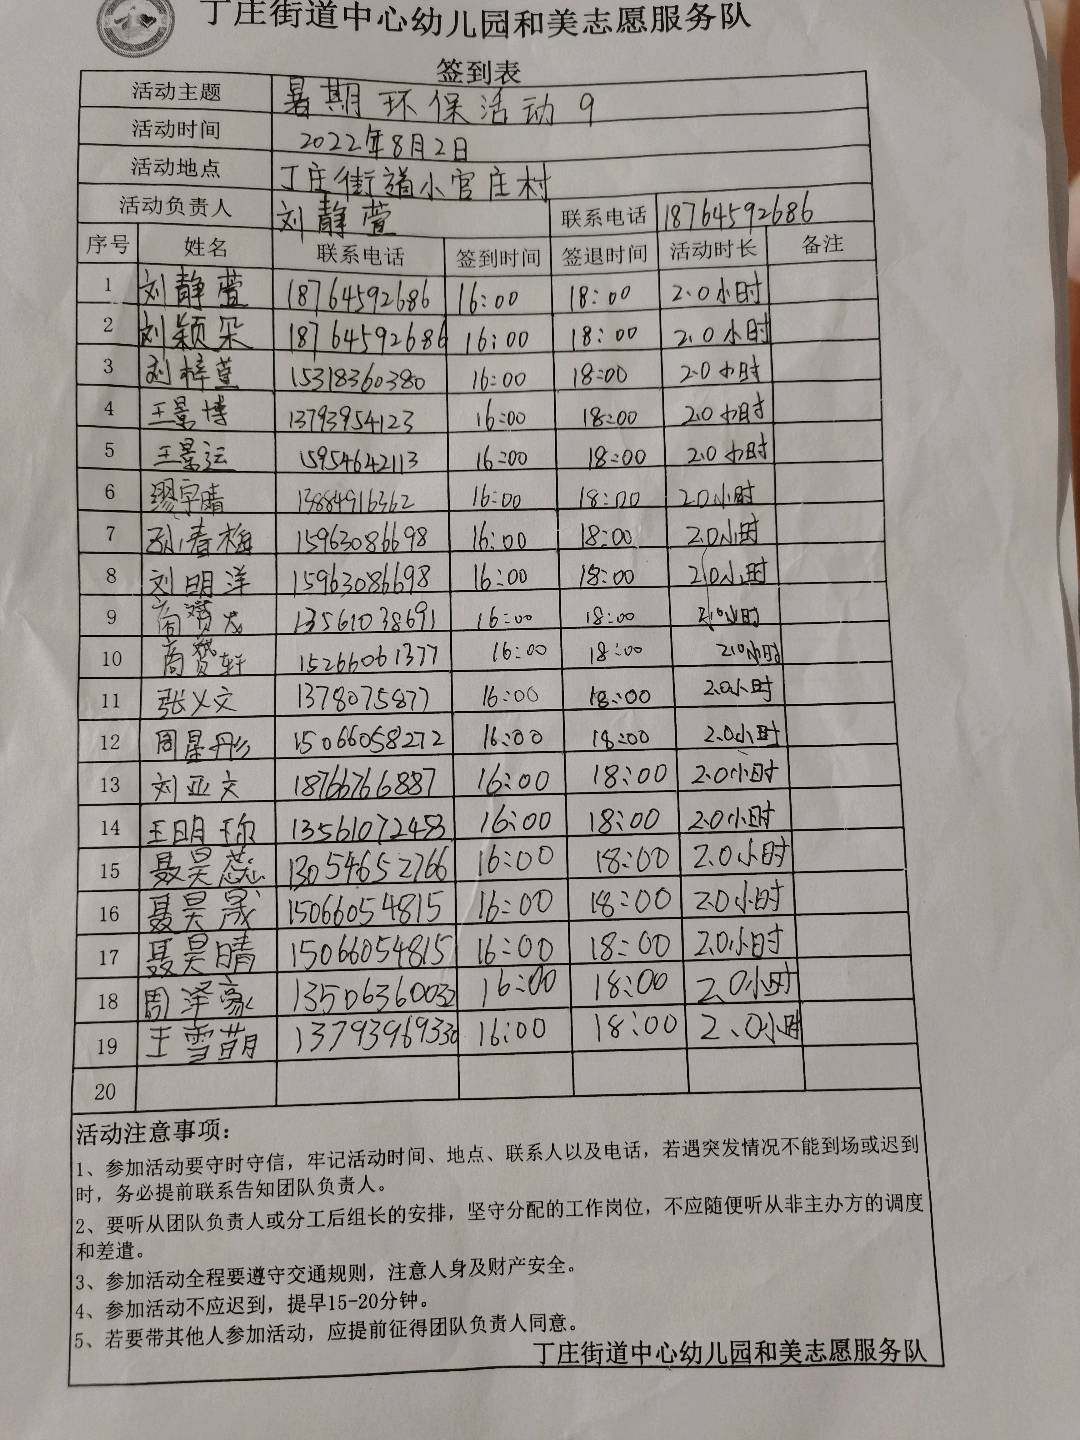 丁庄街道中心幼儿园和美志愿服务队
签到表
活动主题 暑期环保活动9
活动时间 2022年8月2日
活动地点 丁庄街道小官庄村
活动负责人 刘静萱 联系电话 18764592686
序号 姓名 联系电话 签到时间 签退时间 活动时长 备注
1 刘静萱 18764592686 16:00 18:00 2.0小时
2 刘颖朵 18764592686 16:00 18:00 2.0小时
3 刘梓萱 15318360380 16:00 18:00 2.0小时
4 王景博 13793954123 16:00 18:00 2.0小时
5 王景运 15954642113 16:00 18:00 2.0小时
6 缪宇晴 13884916362 16:00 18:00 2.0小时
7 孙春梅 15963086698 16:00 18:00 2.0小时
8 刘明洋 15963086698 16:00 18:00 2.0小时
9 13561038691 16:00 18:00 2.0小时
10 15266061377 16:00 18:00 2.0小时
11 张义文 1378075877 16:00 18:00 2.0小时
12 周星彤 15066058272 16:00 18:00 2.0小时
13 刘亚文 18766766887 16:00 18:00 2.0小时
14 王明珎 13561072483 16:00 18:00 2.0小时
15 聂昊蕊 13054652766 16:00 18:00 2.0小时
16 聂昊晟 15066054815 16:00 18:00 2.0小时
17 聂昊晴 15066054815 16:00 18:00 2.0小时
18 周泽豪 13506360032 16:00 18:00 2.0小时
19 王雪萌 13793969330 16:00 18:00 2.0小时
20
活动注意事项:
1、参加活动要守时守信，牢记活动时间、地点、联系人以及电话，若遇突发情况不能到场或迟到
时，务必提前联系告知团队负责人。
2、要听从团队负责人或分工后组长的安排，坚守分配的工作岗位，不应随便听从非主办方的调度
和差遣。
3、参加活动全程要遵守交通规则，注意人身及财产安全。
4、参加活动不应迟到，提早15-20分钟。
5、若要带其他人参加活动，应提前征得团队负责人同意。
丁庄街道中心幼儿园和美志愿服务队